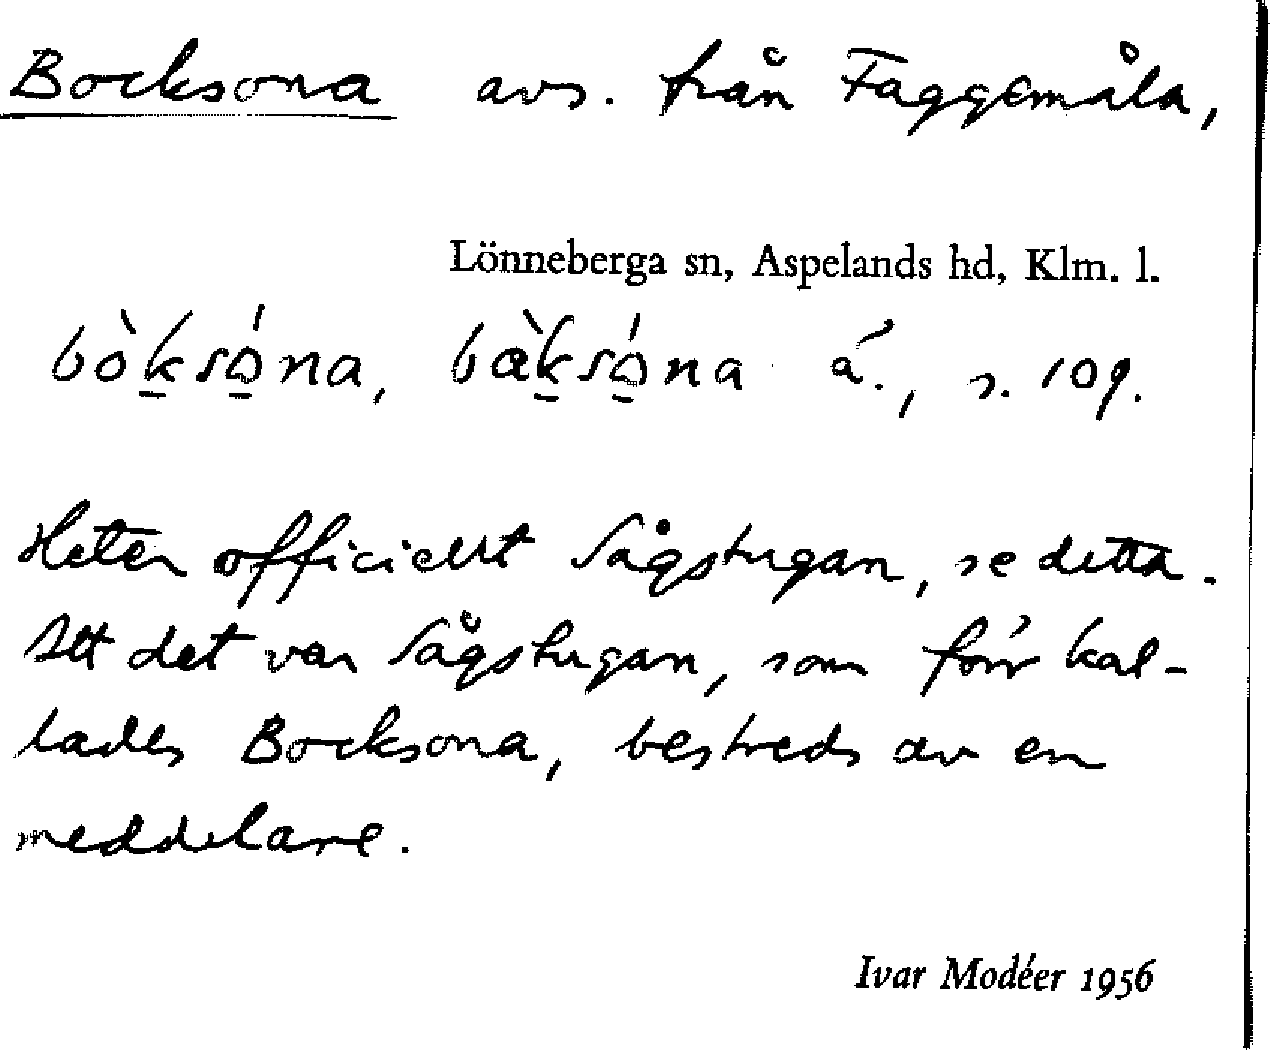 Bocksona avs. från Faggemåla,
Lönneberga sn, Aspelands hd, Klm. l.
bòksǫ́na, bàksǫ́na á., s. 109.
Heter officiellt Sågstugan, se detta.
Att det var Sågstugan, som förr kal-
lades Bocksona, bestreds av en
meddelare.
Ivar Modéer 1956